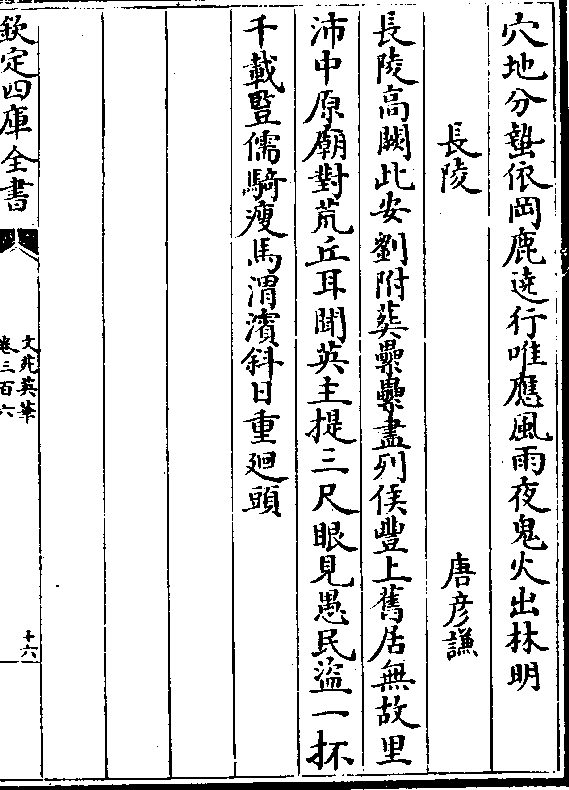 穴地分蟄依岡鹿遶行唯應風雨夜鬼火出林明
長陵 唐彦謙
長陵高闕此安劉附葬纍纍盡列侯豐上舊居無故里
沛中原廟對荒丘耳聞英主提三尺眼見愚民盜一抔
千載豎儒騎瘦馬渭濱斜日重廻頭
欽定四庫全書
文苑英華
卷三百六
十六